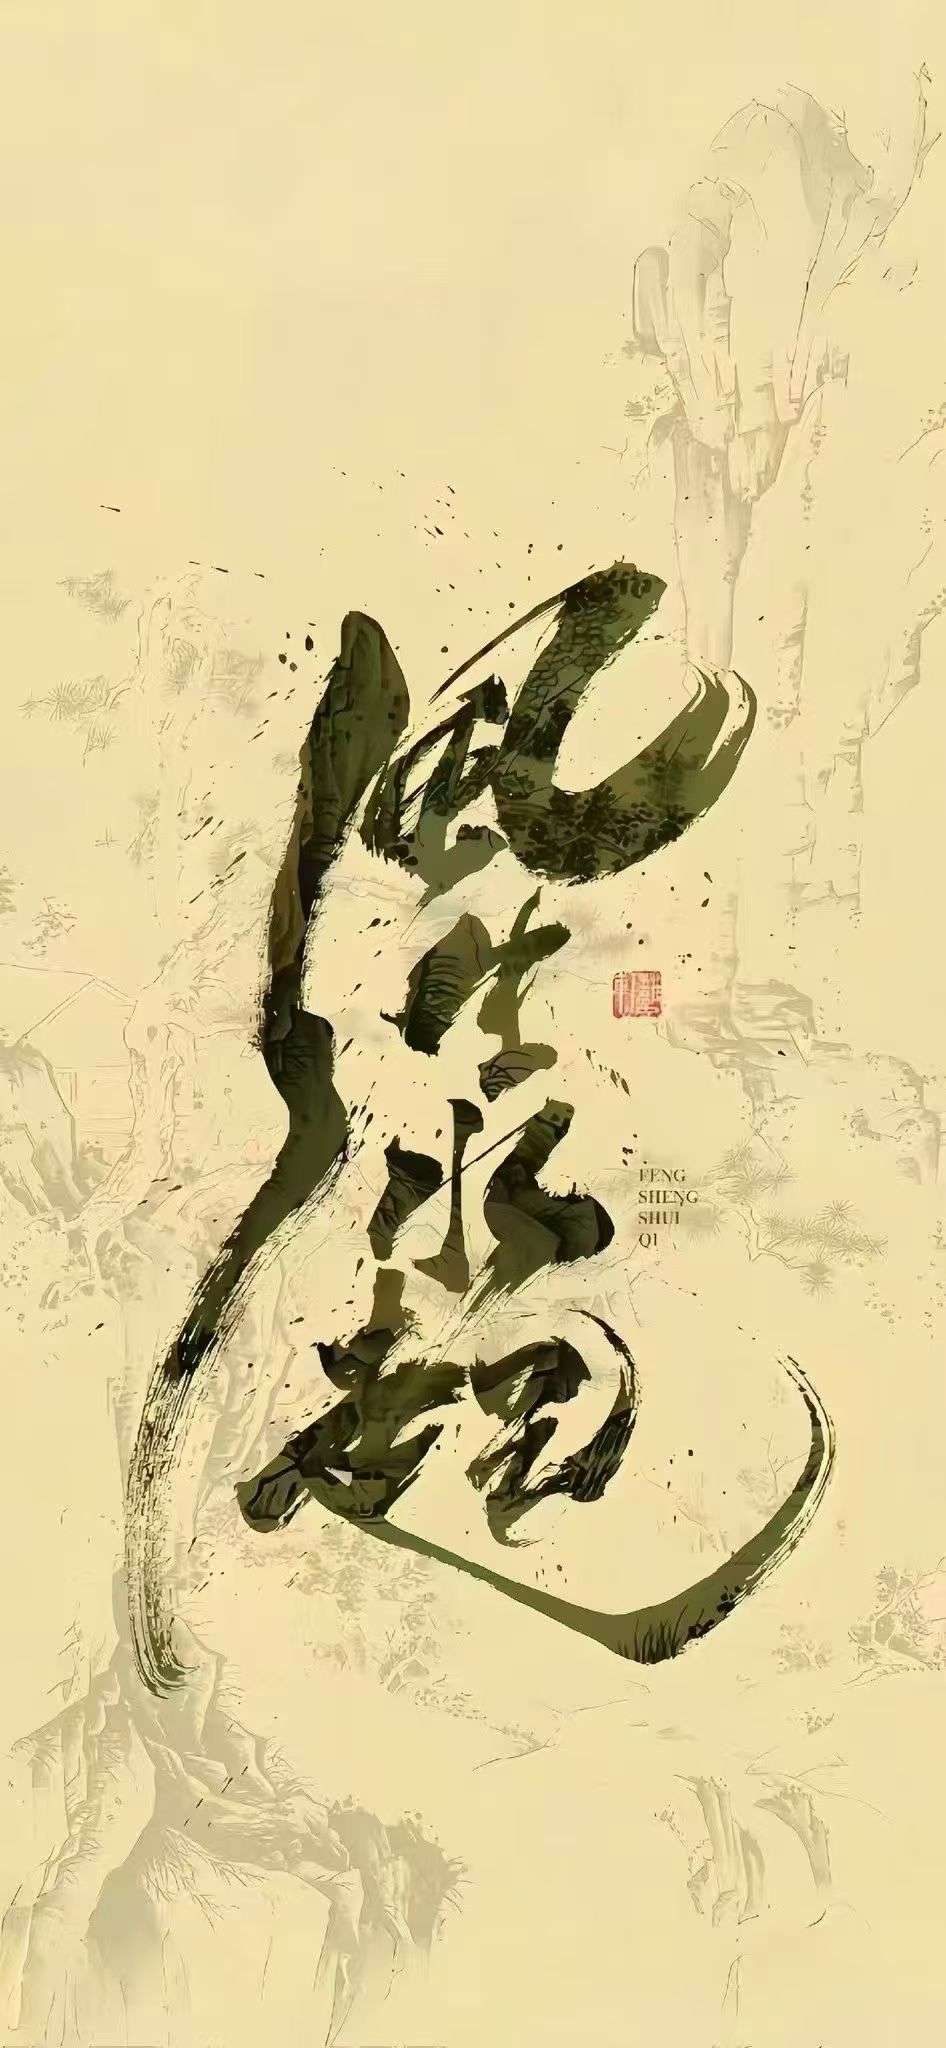 风生水起
FENG
SHENG
SHUI
QI